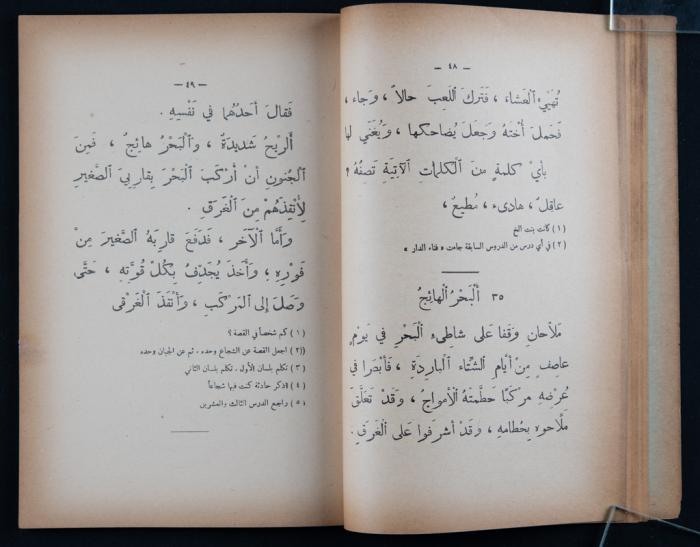 — ٤٨ —
تُهَيِّئُ ٱلْعَشاءَ ، فَتَرَكَ ٱللَّعِبَ حالاً ، وَجاءَ ،
فَحَمَلَ أُخْتَهُ وَجَعَلَ يُضاحِكُها ، وَيُغَنِّي لَها
بِأَيِّ كَلِمَةٍ مِنَ ٱلْكَلِماتِ ٱلْآتِيَةِ تَصِفُهُ ؟
عاقِلٌ ، هادِىءٌ ، مُطيعٌ ،
(١) كانت بنت الخ
(٢) في أي درس من الدروس السابقة جاءت « فناء الدار »
٣٥ ٱلْبَحْرُ ٱلْهائِجُ
مَلاَّحانِ وَقَفا عَلى شاطِىءِ ٱلْبَحْرِ في يَوْمٍ
عاصِفٍ مِنْ أَيَّامِ ٱلشِّتاءِ ٱلْبارِدَةِ ، فَأَبْصَرا في
عُرْضِهِ مَرْكَبًا حَطَّمَتْهُ ٱلْأَمْواجُ ، وَقَدْ تَعَلَّقَ
مَلاَّحوهُ بِحُطامِهِ ، وَقَدْ أَشْرَفوا عَلى ٱلْغَرَقِ .
— ٤٩ —
فَقالَ أَحَدُهُما في نَفْسِهِ .
أَلرِّيحُ شَديدَةٌ ، وَٱلْبَحْرُ هائِجٌ ، فَمِنَ
ٱلْجُنونِ أَنْ أَرْكَبَ ٱلْبَحْرَ بِقارِبِيَ ٱلصَّغيرِ
لِأُنْقِذَهُمْ مِنَ ٱلْغَرَقِ .
وَأَمَّا ٱلْآخَرُ ، فَدَفَعَ قارِبَهُ ٱلصَّغيرَ مِنْ
فَوْرِهِ ، وَأَخَذَ يُجَذِّفُ بِكُلِّ قُوَّتِهِ ، حَتَّى
وَصَلَ إِلى ٱلْمَرْكَبِ ، وَأَنْقَذَ ٱلْغَرْقى
(١) كم شخصاً في القصة ؟
((٢) اجعل القصة عن الشجاع وحده . ثم عن الجبان وحده
(٣) تكلم بلسان الأول . تكلم بلسان الثاني
(٤) اذكر حادثة كنت فيها شجاعاً
(٥) راجع الدرس الثالث والعشرين